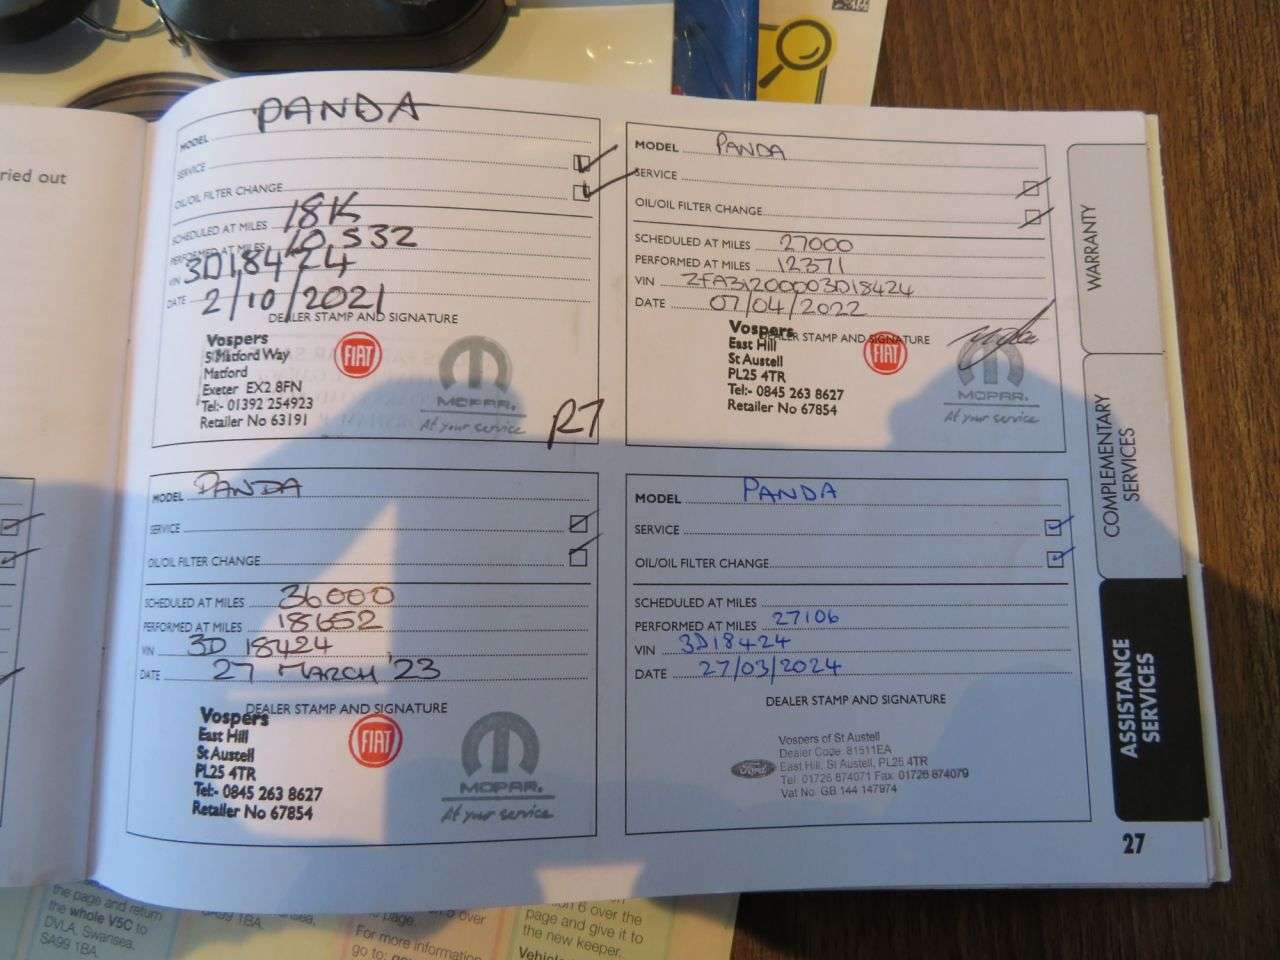 ried out
MODEL PANDA
SERVICE
OIL/OIL FILTER CHANGE
SCHEDULED AT MILES 18K
PERFORMED AT MILES 10,532
VIN 3D18424
DATE 2/10/2021
DEALER STAMP AND SIGNATURE
Vospers
5 Matford Way
Matford
Exeter EX2 8FN
Tel:- 01392 254923
Retailer No 63191
FIAT
MOPAR.
At your service
RT
MODEL PANDA
SERVICE
OIL/OIL FILTER CHANGE
SCHEDULED AT MILES 27000
PERFORMED AT MILES 12371
VIN ZFA31200003D18424
DATE 07/04/2022
DEALER STAMP AND SIGNATURE
Vospers
East Hill
St Austell
PL25 4TR
Tel:- 0845 263 8627
Retailer No 67854
FIAT
MOPAR.
At your service
MODEL PANDA
SERVICE
OIL/OIL FILTER CHANGE
SCHEDULED AT MILES 36000
PERFORMED AT MILES 18652
VIN 3D 18424
DATE 27 MARCH '23
DEALER STAMP AND SIGNATURE
Vospers
East Hill
St Austell
PL25 4TR
Tel:- 0845 263 8627
Retailer No 67854
FIAT
MOPAR.
At your service
MODEL PANDA
SERVICE
OIL/OIL FILTER CHANGE
SCHEDULED AT MILES
PERFORMED AT MILES 27106
VIN 3D18424
DATE 27/03/2024
DEALER STAMP AND SIGNATURE
Ford
Vospers of St Austell
Dealer Code: 81511EA
East Hill, St Austell, PL25 4TR
Tel 01726 874071 Fax 01726 874079
Vat No. GB 144 147974
WARRANTY
COMPLEMENTARY
SERVICES
ASSISTANCE
SERVICES
27
the page and return
the whole V5C to
DVLA, Swansea,
SA99 1BA.
SA99 1BA.
page.
For more information
go to:
6 over the
page and give it to
the new keeper.